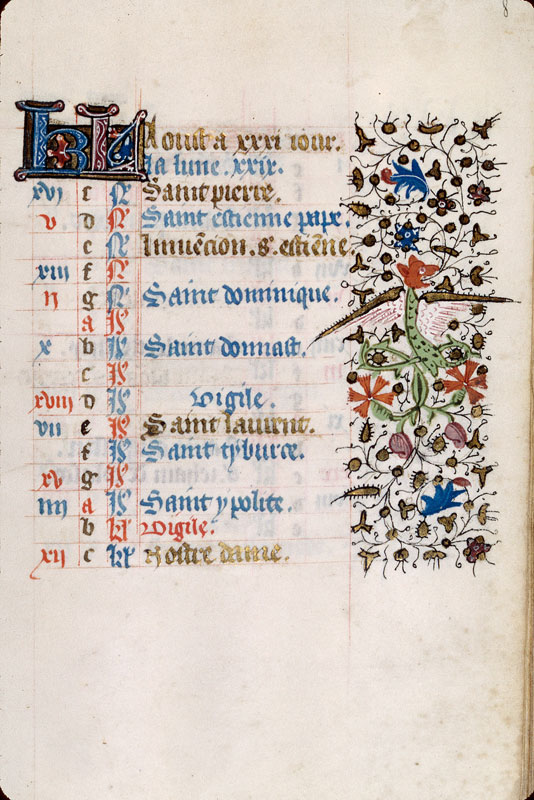 KL Aoust a xxxi iour.
La lune .xxix.
xvi c N Saint pierre.
v d N Saint estienne pape.
e N Inuencion .s. estiene
xiii f N
ii g N Saint dominique.
a Id
x b Id Saint donnast.
c Id
xviii d Id vigile.
vii e Id Saint laurent.
f Id Saint tyburce.
xv g Id
iiii a Id Saint ypolite.
b kl vigile.
xii c kl Nostre dame.